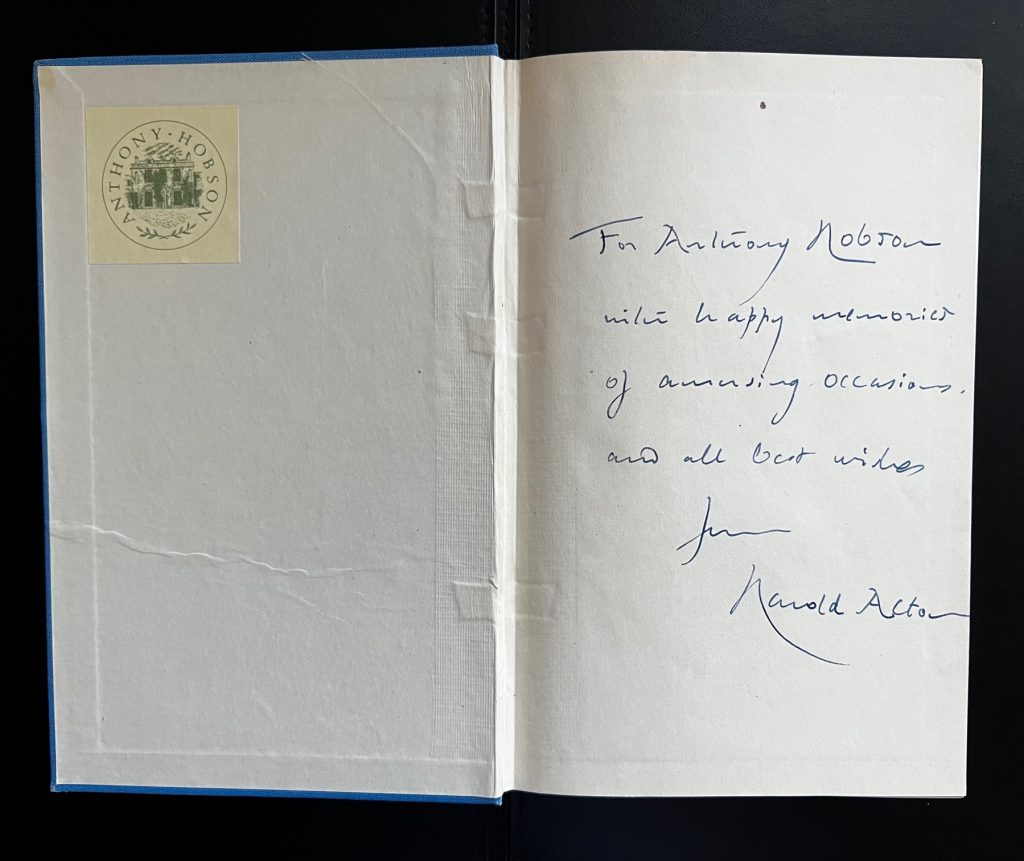 ANTHONY · HOBSON
For Anthony Hobson
with happy memories
of amusing occasions,
and all best wishes
from
Harold Acton